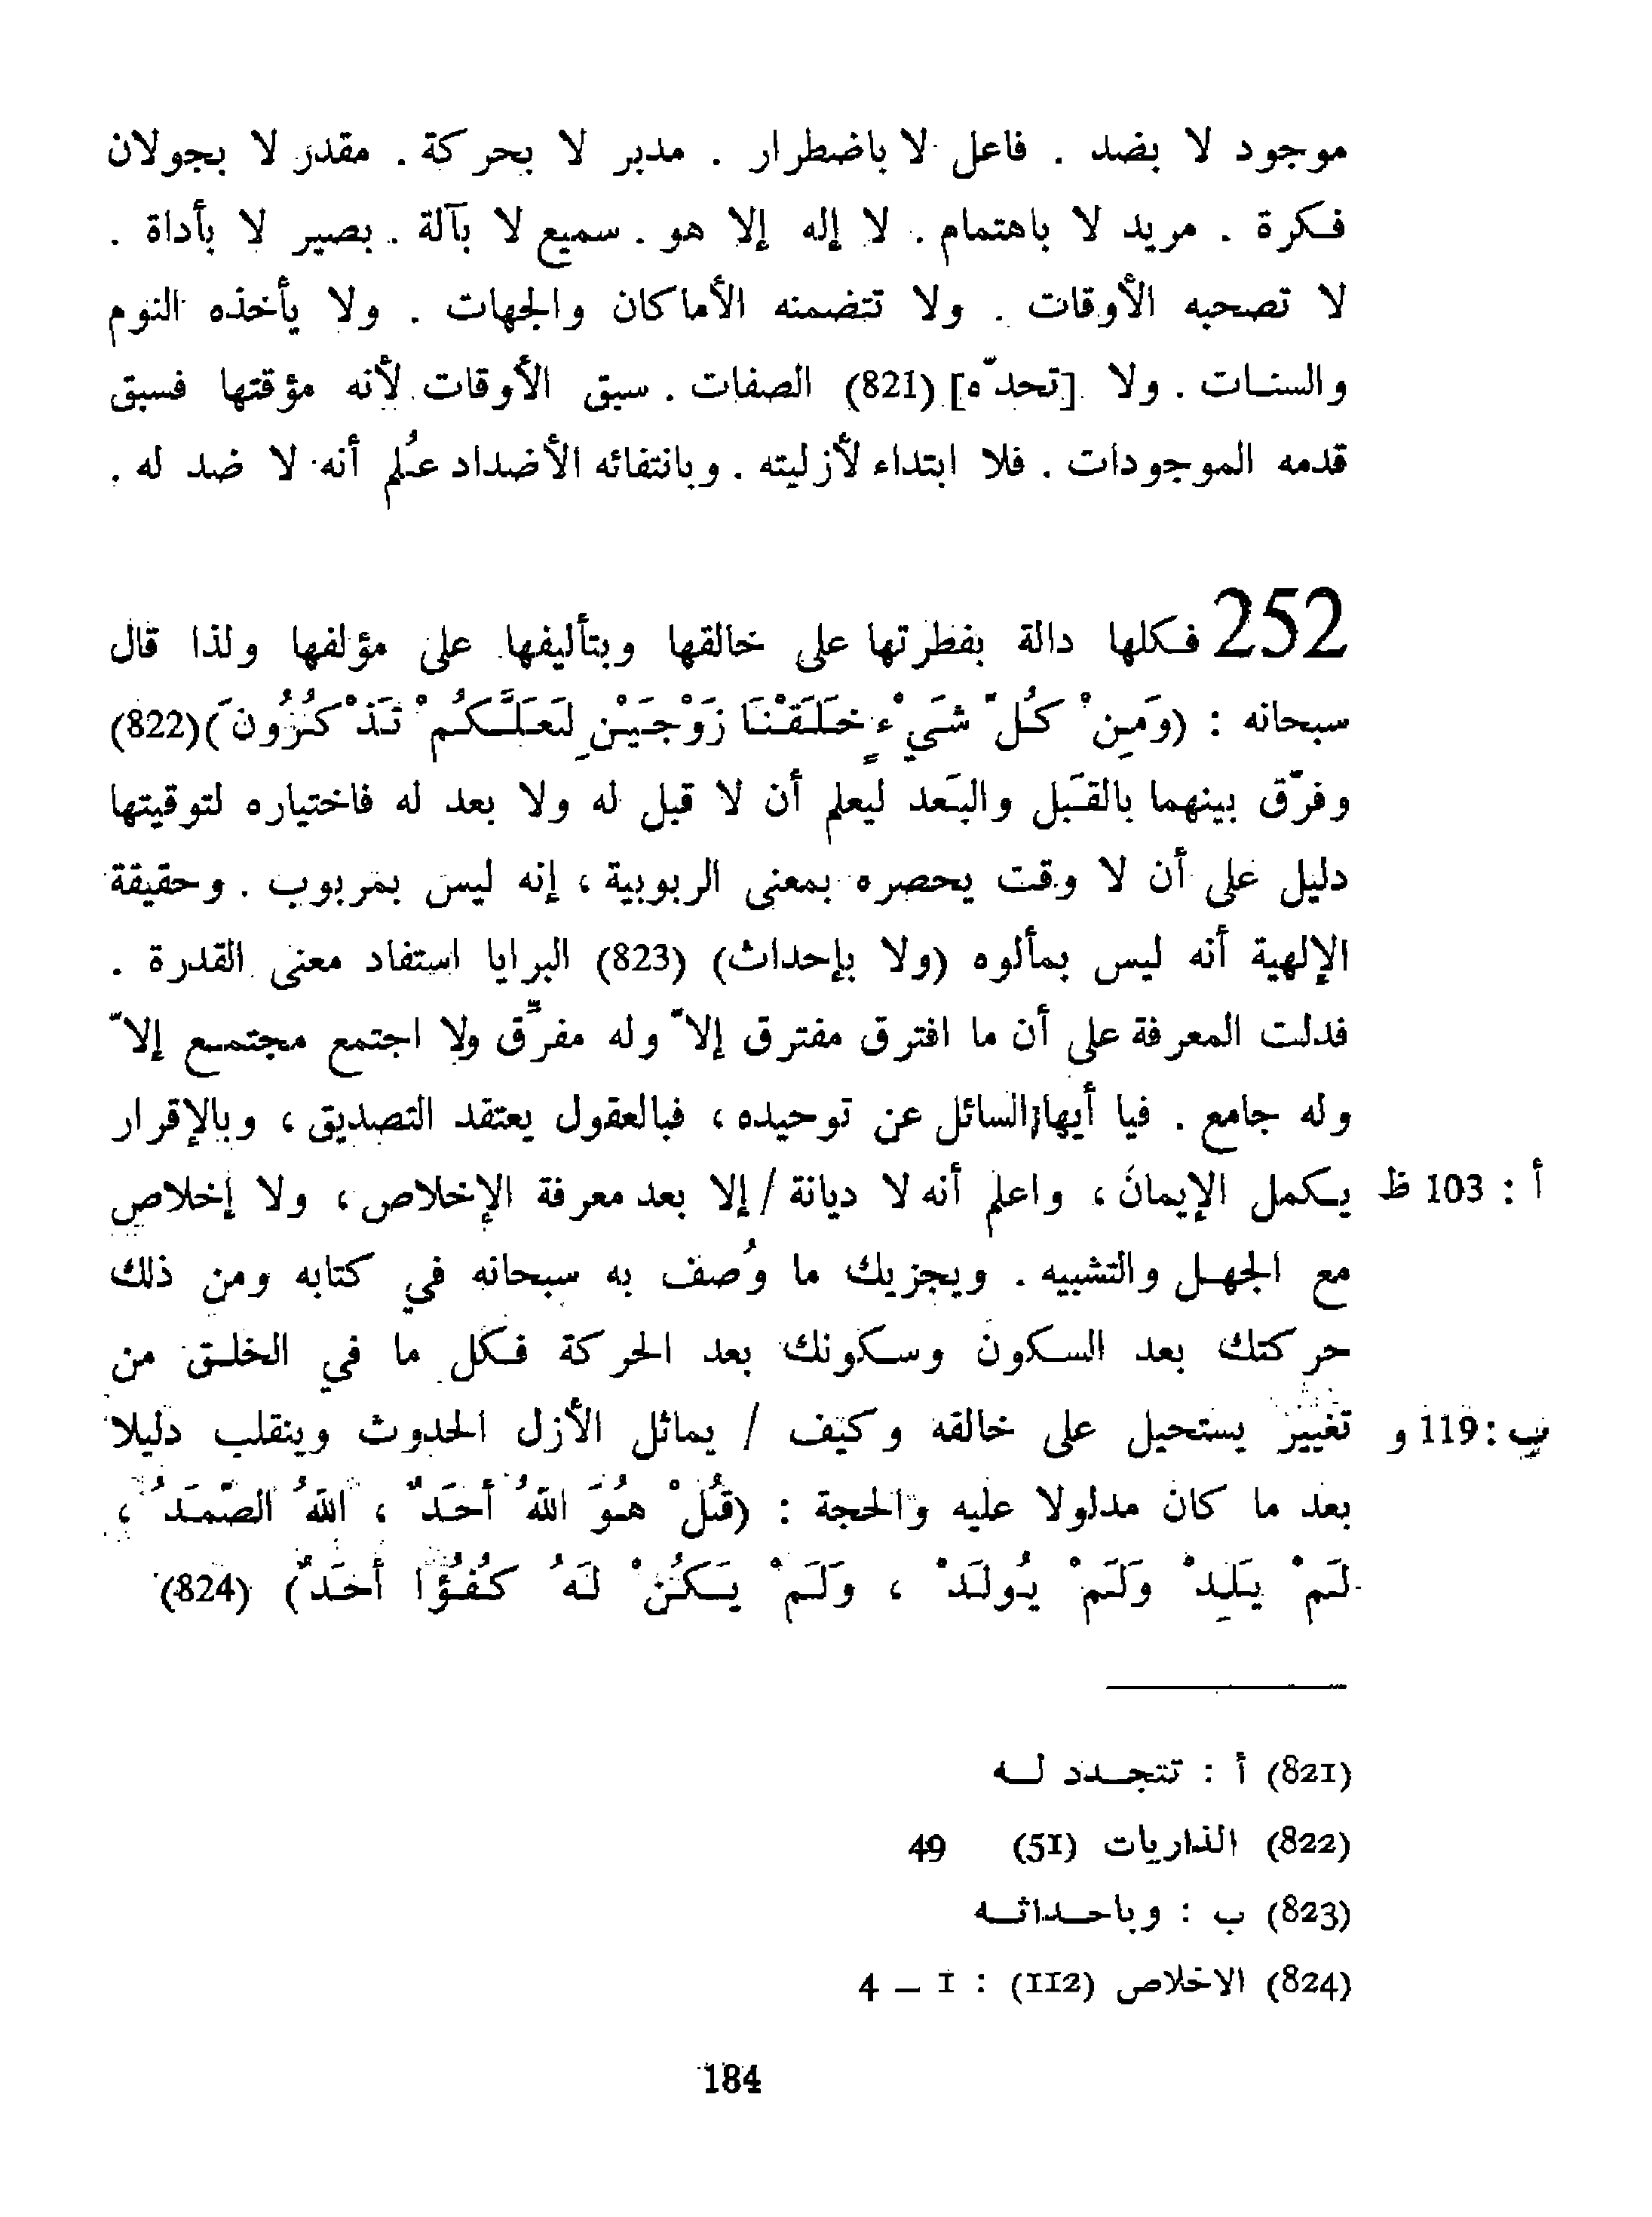 موجود لا بضد . فاعل لا باضطرار . مدبر لا بحركة . مقدر لا بجولان
فكرة . مريد لا باهتمام . لا إله إلا هو . سميع لا بآلة . بصير لا بأداة .
لا تصحبه الأوقات . ولا تتضمنه الأماكان والجهات . ولا يأخذه النوم
والسنات . ولا [تحدّه] (821) الصفات . سبق الأوقات لأنه مؤقتها فسبق
قدمه الموجودات . فلا ابتداء لأزليته . وبانتفائه الأضداد عُلم أنه لا ضد له .
252 فكلها دالة بفطرتها على خالقها وبتأليفها على مؤلفها ولذا قال
سبحانه : (وَمِنْ كُلّ شَيْءٍ خَلَقْنَا زَوْجَيْنِ لَعَلَّكُمْ تَذْكُزُونَ)(822)
وفرّق بينهما بالقَبل والبَعد ليعلم أن لا قبل له ولا بعد له فاختياره لتوقيتها
دليل على أن لا وقت يحصره بمعنى الربوبية ، إنه ليس بمربوب . وحقيقة
الإلهية أنه ليس بمألوه (ولا بإحداث) (823) البرايا استفاد معنى القدرة .
فدلت المعرفة على أن ما افترق مفترق إلاّ وله مفرِّق ولا اجتمع مجتمع إلاّ
وله جامع . فيا أيها السائل عن توحيده ، فبالعقول يعتقد التصديق ، وبالإقرار
أ : 103 ظ يكمل الإيمان ، واعلم أنه لا ديانة / إلا بعد معرفة الإخلاص ، ولا إخلاص
مع الجهل والتشبيه . ويجزيك ما وُصف به سبحانه في كتابه ومن ذلك
حركتك بعد السكون وسكونك بعد الحركة فكل ما في الخلق من
ب : 119 و تغيير يستحيل على خالقه وكيف / يماثل الأزل الحدوث وينقلب دليلا
بعد ما كان مدلولا عليه والحجة : (قُلْ هُوَ اللهُ أَحَدٌ ، اللهُ الصّمَدُ ،
لَمْ يَلِدْ وَلَمْ يُولَدْ ، وَلَمْ يَكُنْ لَهُ كُفُؤًا أَحَدٌ) (824)
(821) أ : تتجدد له
(822) الذاريات (51) 49
(823) ب : وباحداثه
(824) الاخلاص (112) : 1 – 4
184